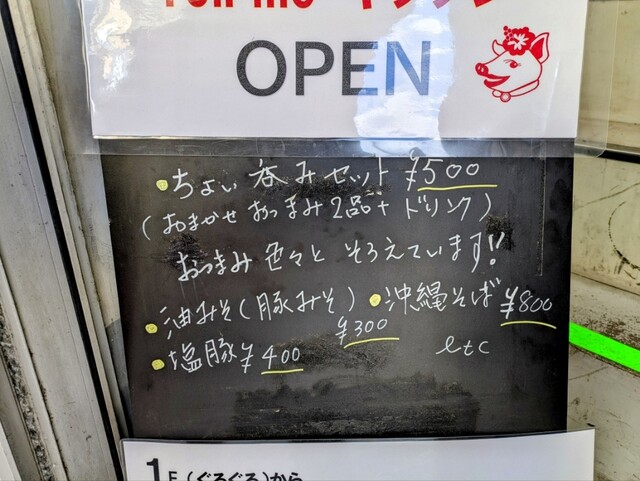 OPEN
・ちょい呑みセット ¥500
(おまかせおつまみ2品+ドリンク)
おつまみ色々とそろえています!!
・油みそ(豚みそ) ¥300 ・沖縄そば ¥800
・塩豚 ¥400 etc
1F(ぐるぐる)から